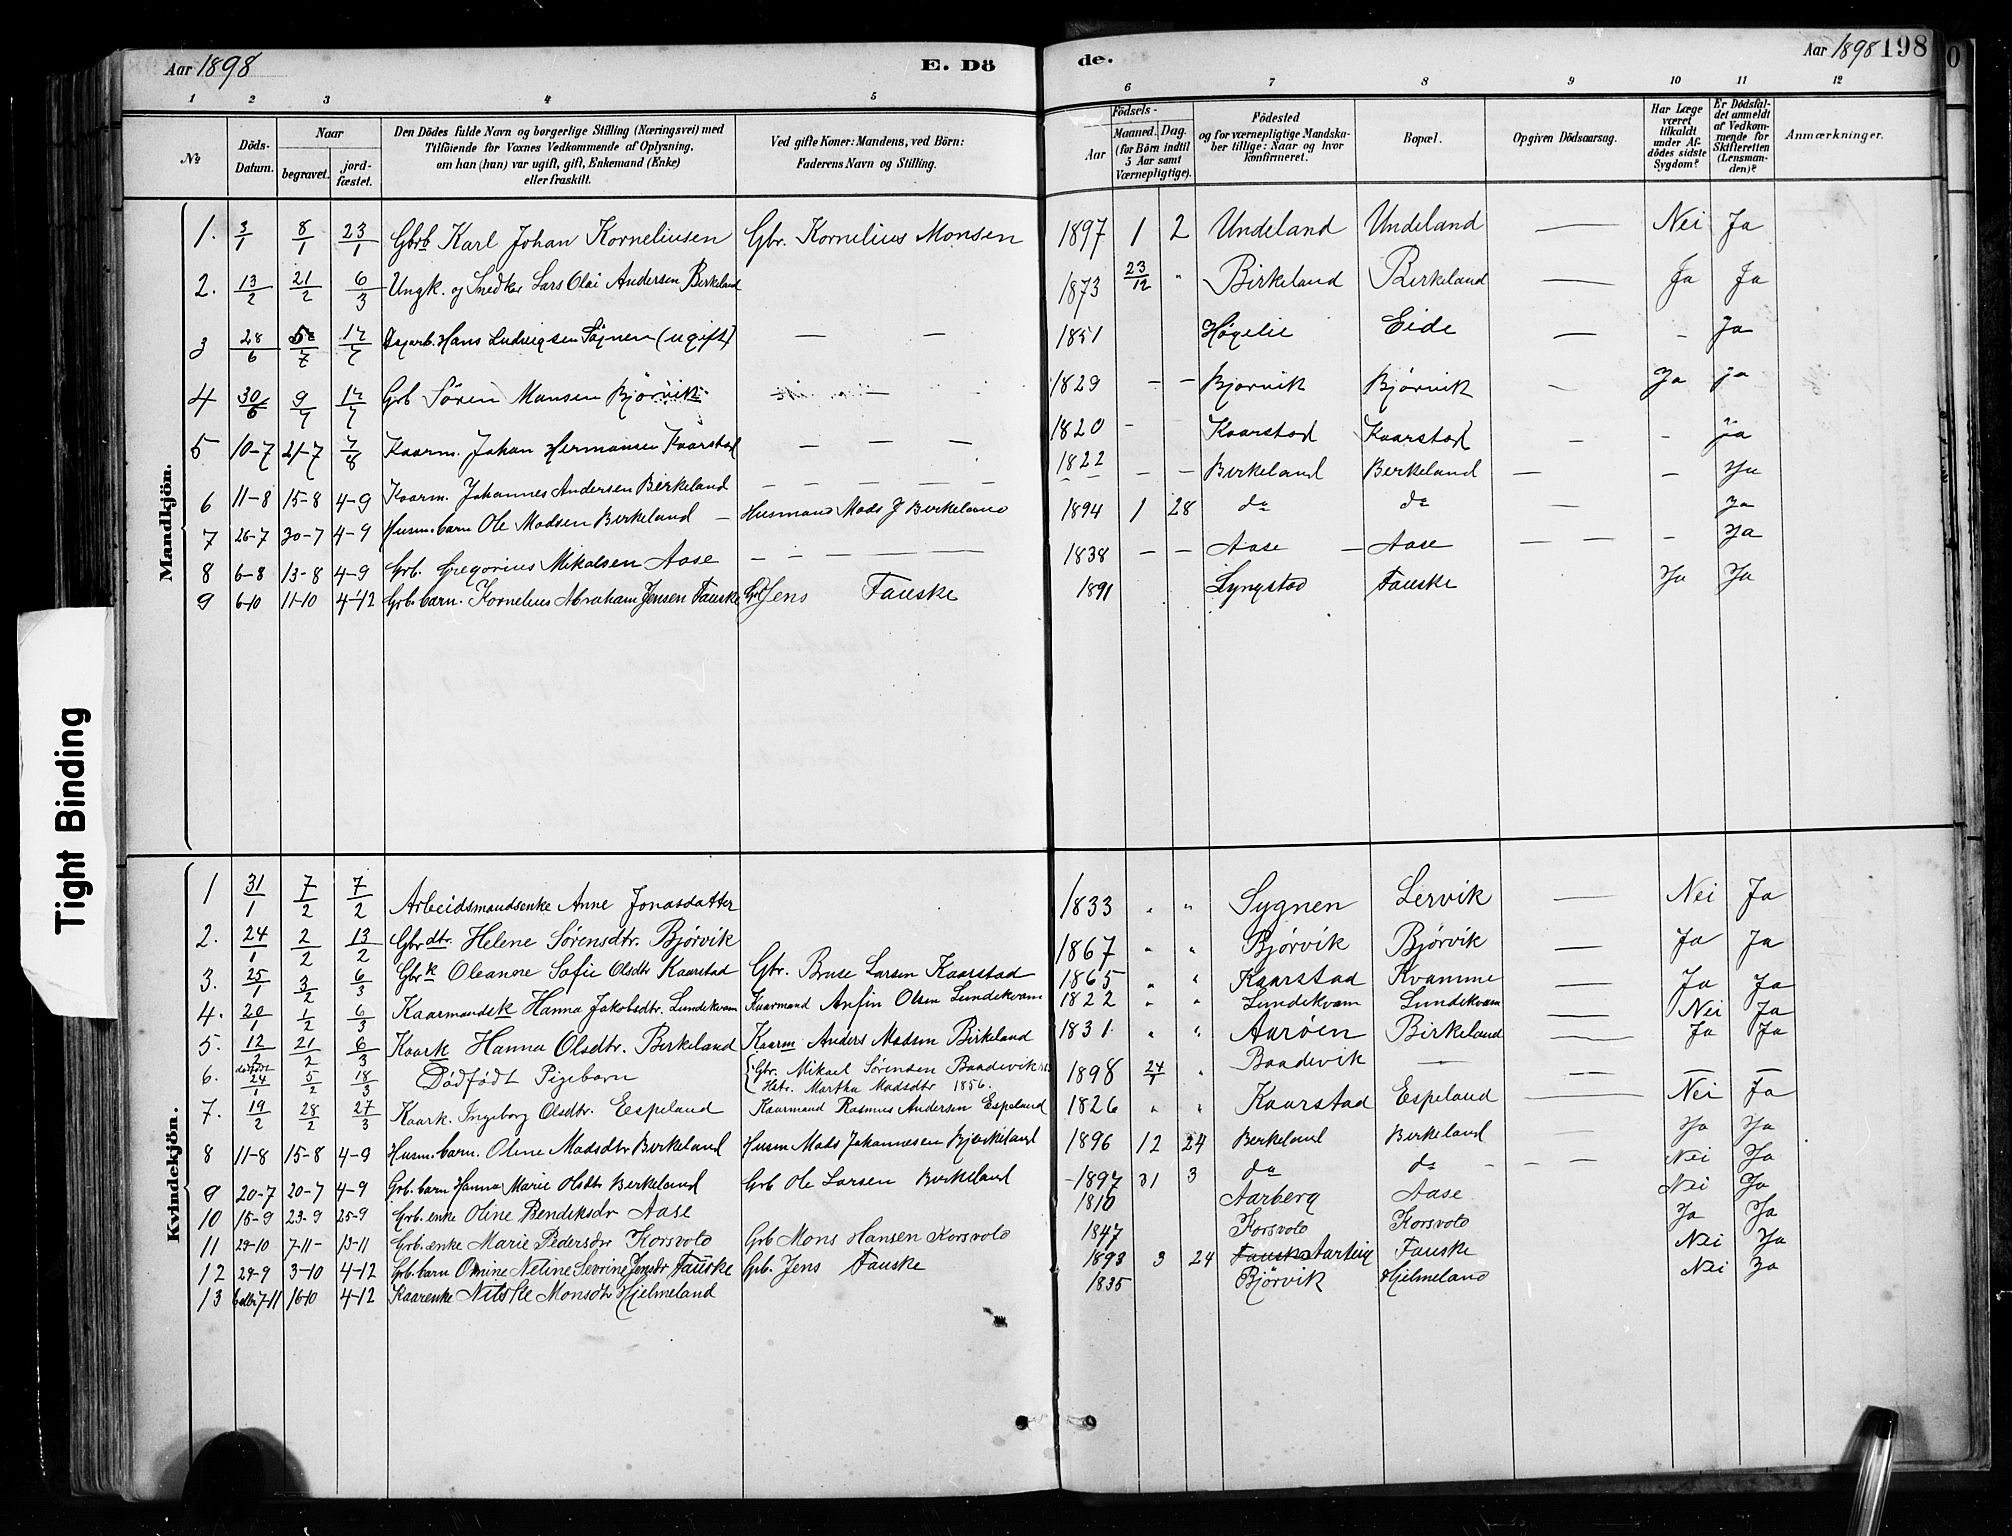 Aar 1898 E. Dö de. Aar 1898 198
1 2 3 4 5 6 7 8 9 10 11 12
No
Döds-Datum.
Naar begravet. jordfæstet.
Den Dödes fulde Navn og borgerlige Stilling (Næringsvei) med
Tilföiende for Voxnes Vedkommende af Oplysning,
om han (hun) var ugift, gift, Enkemand (Enke)
eller fraskilt.
Ved gifte Koner: Mandens, ved Börn:
Faderens Navn og Stilling.
Födsels-
Aar Maaned. Dag.
(for Börn indtil
5 Aar samt
Værnepligtige).
Födested
og for værnepligtige Mandskaber tillige: Naar og hvor
konfirmeret.
Bopæl.
Opgiven Dödsaarsag.
Har Læge
været
tilkaldt
under Afdödes sidste
Sygdom?
Er Dödsfaldet anmeldt
af Vedkommende for
Skifteretten
(Lensmanden)?
Anmærkninger.
Mandkjön.
1. 3/1 8/1 23/1 Gbrb Karl Johan Korneliusen Gbr. Kornelius Monsen 1897 1 2 Undeland Undeland — Nei Ja
2. 13/2 21/2 6/3 Ungk. og Snedker Lars Olai Andersen Birkeland 1873 23/12 " Birkeland Birkeland — Ja Ja
3 28/6 /7 17/7 Hans Ludvigsen (ugift) — — 1851 Høgelie Eide — - Ja
4 30/6 9/7 17/7 Grb Sören Monsen Björvik — — 1829 — — Bjorvik Bjørvik — Ja Ja
5 10-7 21-7 7/8 Kaarm. Johan Hermansen Kaarstad — — — 1820 - Kaarstad Kaarstad - - Ja
6 11-8 15-8 4-9 Kaarm. Johannes Andersen Birkeland — — — — — 1822 — — Birkeland Birkeland — — Ja
7 26-7 30-7 4-9 Husm. barn Ole Madsen Birkeland — Husmand Mads J Birkeland 1894 1 28 do do Ja
8 6-8 13-8 4-9 Grb. Gregorius Mikalsen Aase — — — — — 1838 — — Aase — Aase — — - Ja
9 6-10 11-10 4-12 Grb. barn. Kornelius Abraham Jensen Fauske Grb Jens Fauske 1891 Lyngstad Fauske Ja Ja
Kvindekjön.
1 31/1 7/2 7/2 Arbeidsmandsenke Anne Jonasdatter 1833 " " Sygnen Lervik — Nei Ja
2. 24/1 2/2 13/2 Gbrdtr. Helene Sørensdtr. Bjørvik 1867 " " Bjørvik Bjørvik — Ja Ja
3. 25/1 3/2 6/3 Gbrk Oleanne Sofie Olsdtr Kaarstad Gbr. Brase Larsen Kaarstad 1865 " " Kaarstad Kvamme — Ja Ja
4. 20/1 1/2 6/3 Kaarmandsk Hanna Jakobsdtr. Lundekvam Kaarmand Anfin Olsen Lundekvam 1822 " " Lundekvam Lundekvam — Nei Ja
5. 12/2 21/2 6/3 Kaark Hanna Olsdtr. Birkeland Kaarm Anders Madsen Birkeland 1831. " " Aarøen Birkeland — Ja Ja
6. dødfødt 24/1 5/2 18/3 Dödfödt Pigebarn { Gbr. Mikael Sørensen Baadevik
Hstr. Martha Madsdtr 1856. 1898 24/1 " Baadevik — — — —
7. 19/2 28/2 27/3 Kaark. Ingeborg Olsdtr. Espeland Kaarmand Rasmus Andersen Espeland 1826 " " Kaarstad Espeland — Nei Ja
8 11-8 15-8 4-9 Husm. barn. Oline Madsdtr Birkeland Husm Mads Johannesen Birkeland 1896 12 24 Birkeland Birkeland — Ja Ja
9 20-7 20-7 4-9 Grb. barn Hanna Marie Olsdtr Birkeland Grb Ole Larsen Birkeland -1897 31 3 do do - - — Nei Ja
10 15-9 23-9 25-9 Grb. enke Oline Bendiksdr Aase 1810 Aarberg Aase Nei Ja
11 29-10 7-11- 13-11 Grb. enke Marie Pedersdtr Korsvold Grb Mons Hansen Korsvold 1847 Korsvold Korsvold Ja Ja
12 29-9 3-10 4-12 Grb. barn Omine Neline Sevrine Jensdtr Fauske Grb. Jens Fauske 1893 3 24 Fauske Aarberg Fauske Nei Ja
13 7-11 16-10 4-12 Kaarenke Nilske Monsdtr Hjelmeland 1835 Bjørvik Hjelmeland Nei Ja
Tight Binding